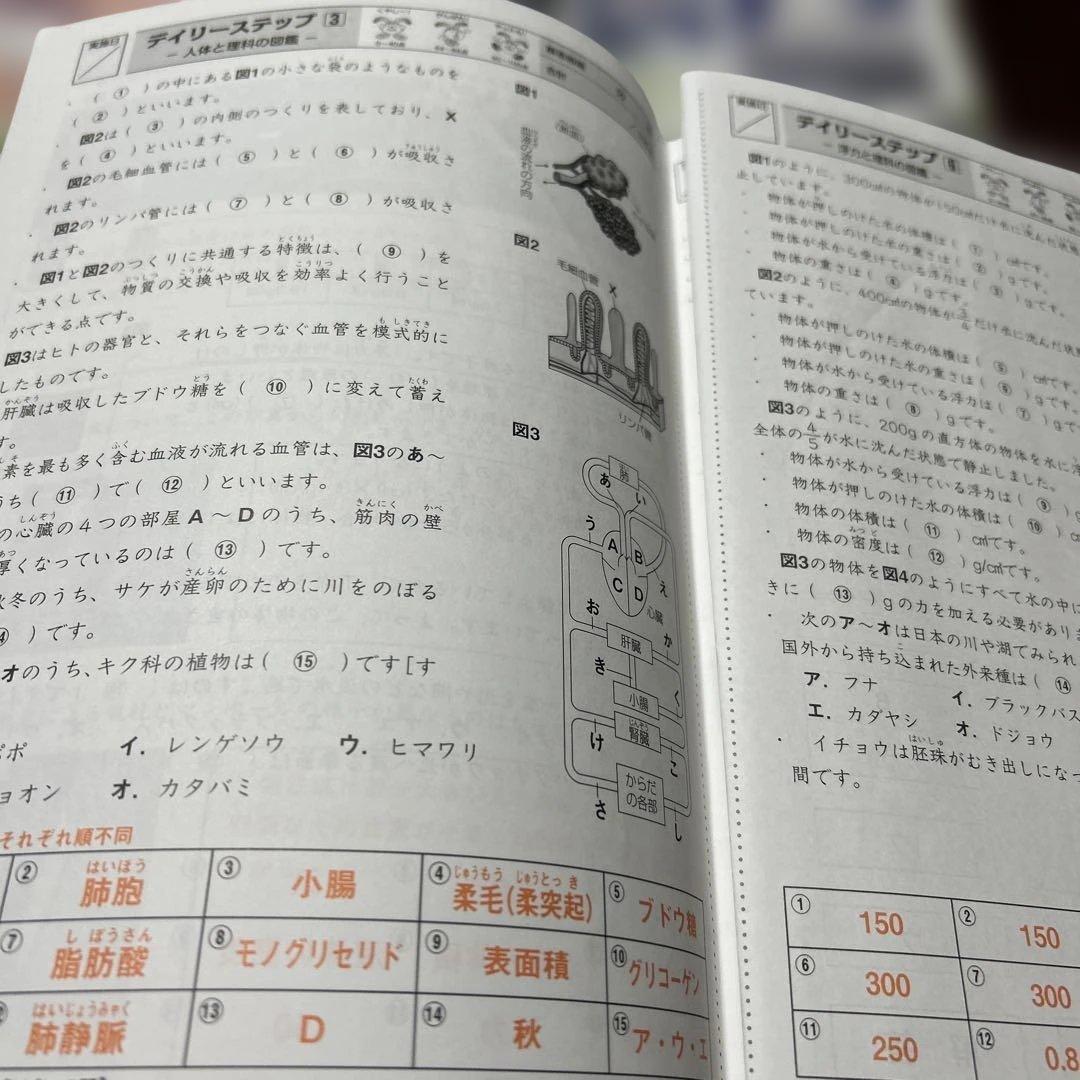 実施日
デイリーステップ 3
－人体と理科の図鑑－
・（ ① ）の中にある図1の小さな袋のようなものを
（ ② ）といいます。
図2は（ ③ ）の内側のつくりを表しており、X
を（ ④ ）といいます。
・図2の毛細血管には（ ⑤ ）と（ ⑥ ）が吸収さ
れます。
・図2のリンパ管には（ ⑦ ）と（ ⑧ ）が吸収さ
れます。
・図1と図2のつくりに共通する特徴は、（ ⑨ ）を
大きくして、物質の交換や吸収を効率よく行うこと
ができる点です。
図3はヒトの器官と、それらをつなぐ血管を模式的に
したものです。
肝臓は吸収したブドウ糖を（ ⑩ ）に変えて蓄え
す。
素を最も多く含む血液が流れる血管は、図3のあ～
うち（ ⑪ ）で（ ⑫ ）といいます。
の心臓の4つの部屋A～Dのうち、筋肉の壁
厚くなっているのは（ ⑬ ）です。
秋冬のうち、サケが産卵のために川をのぼる
）です。
オのうち、キク科の植物は（ ⑮ ）です[す
ポポ イ．レンゲソウ ウ．ヒマワリ
ョオン オ．カタバミ
図1
血液の流れの方向
図2
毛細血管
X
リンパ管
図3
肺
あ
い
う
A
B
C
D
え
心臓
お
か
肝臓
き
く
小腸
腎臓
け
こ
からだ
の各部
さ
し
それぞれ順不同
② 肺胞 はいほう
③ 小腸
④ 柔毛(柔突起) じゅうもう じゅうとっき
⑤ ブドウ糖
⑦ 脂肪酸 しぼうさん
⑧ モノグリセリド
⑨ 表面積
⑩ グリコーゲン
肺静脈 はいじょうみゃく
⑬ D
⑭ 秋
⑮ ア・ウ・エ
デイリーステップ 6
－浮力と理科の図鑑－
図1のように、300㎤の物体が150㎤だけ水に沈んだ状態
止しています。
・物体が押しのけた水の体積は（ ① ）㎤です。
・物体が押しのけた水の重さは（ ② ）gです。
・物体が水から受けている浮力は（ ③ ）gです。
・物体の重さは（ ④ ）gです。
図2のように、400㎤の物体が3/4だけ水に沈んだ状態
ています。
・物体が押しのけた水の体積は（ ⑤ ）㎤です
・物体が押しのけた水の重さは（ ⑥ ）gです。
・物体が水から受けている浮力は（ ⑦ ）gで
・物体の重さは（ ⑧ ）gです。
図3のように、200gの直方体の物体を水に浮
全体の4/5が水に沈んだ状態で静止しました。
・物体が水から受けている浮力は（ ⑨ ）g
・物体が押しのけた水の体積は（ ⑩ ）㎤
・物体の体積は（ ⑪ ）㎤です。
・物体の密度は（ ⑫ ）g/㎤です。
図3の物体を図4のようにすべて水の中に
きに（ ⑬ ）gの力を加える必要があり
・次のア～オは日本の川や湖でみられ
国外から持ち込まれた外来種は（ ⑭
ア．フナ イ．ブラックバス
エ．カダヤシ オ．ドジョウ
・イチョウは胚珠がむき出しになっ
間です。
① 150
② 150
⑥ 300
⑦ 300
⑪ 250
⑫ 0.8